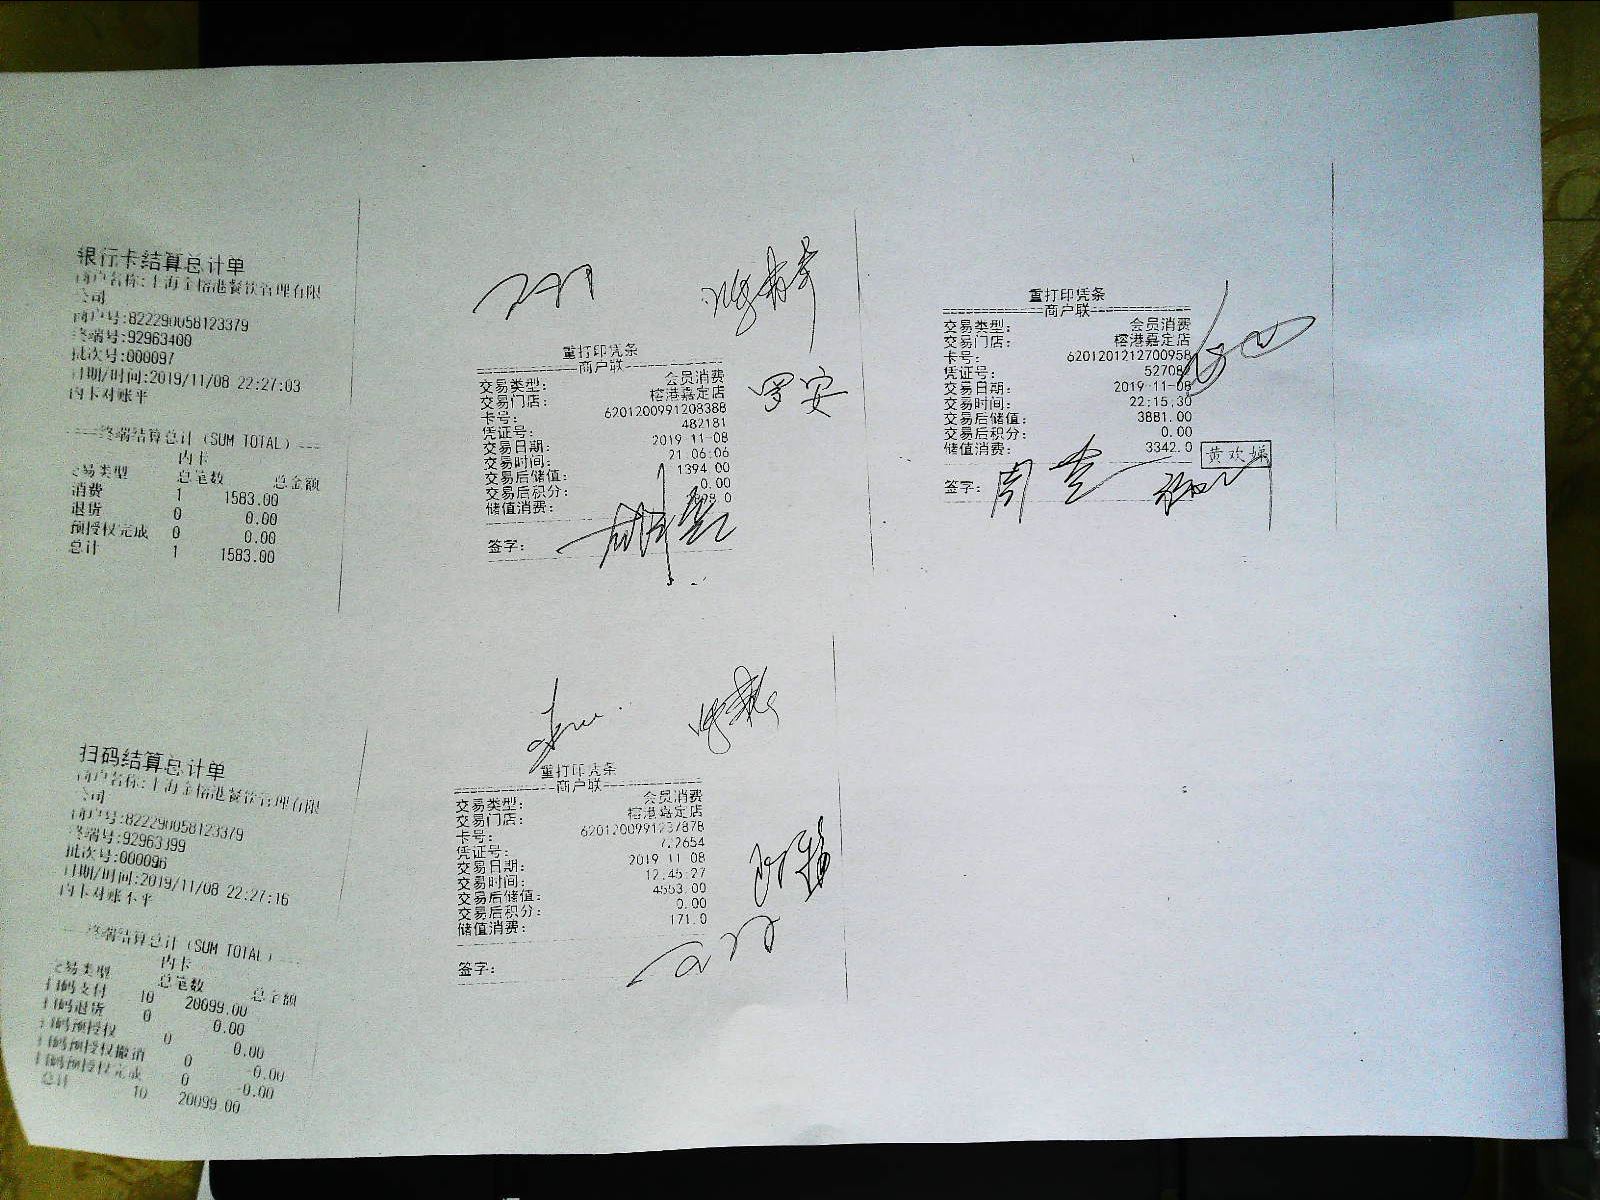 银行卡结算总计单
商户名称:上海金榕港餐饮管理有限
公司
商户号:822290058123379
终端号:92963400
批次号:000097
日期/时间:2019/11/08 22:27:03
内卡对账平
终端结算总计(SUM TOTAL)
内卡
交易类型 总笔数 总金额
消费 1 1583.00
退货 0 0.00
预授权完成 0 0.00
总计 1 1583.00
重打印凭条
商户联
交易类型: 会员消费
交易门店: 榕港嘉定店
卡号: 6201200991208388
凭证号: 482181
交易日期: 2019-11-08
交易时间: 21:06:06
交易后储值: 1394.00
交易后积分: 0.00
储值消费:
签字:
罗安
重打印凭条
商户联
交易类型: 会员消费
交易门店: 榕港嘉定店
卡号: 6201201212700958
凭证号: 52708
交易日期: 2019-11-08
交易时间: 22:15:30
交易后储值: 3881.00
交易后积分: 0.00
储值消费: 3342.0
签字:
扫码结算总计单
商户名称:上海金榕港餐饮管理有限
公司
商户号:822290058123379
终端号:92963399
批次号:000096
日期/时间:2019/11/08 22:27:16
内卡对账不平
终端结算总计(SUM TOTAL)
内卡
交易类型 总笔数 总金额
扫码支付 10 20099.00
扫码退货 0 0.00
扫码预授权 0 0.00
扫码预授权撤消 0 -0.00
扫码预授权完成 0 -0.00
总计 10 20099.00
重打印凭条
商户联
交易类型: 会员消费
交易门店: 榕港嘉定店
卡号: 6201200991237878
凭证号:
交易日期: 2019-11-08
交易时间: 12:45:27
交易后储值: 4553.00
交易后积分: 0.00
储值消费: 171.0
签字: